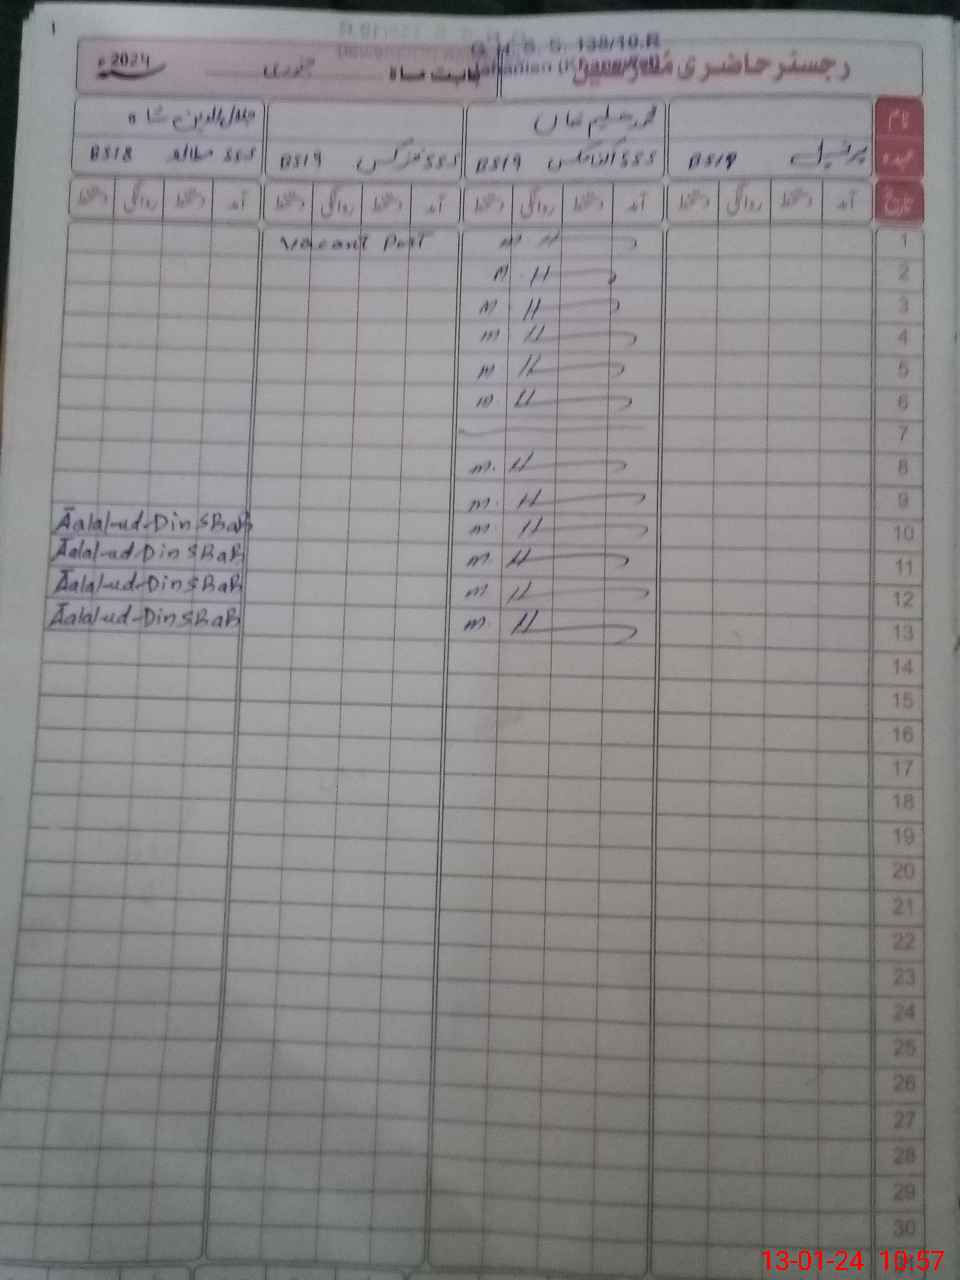 1
G. H. S. S. 138/10.R
رجسٹر حاضری مدرسین
بابت ماہ جنوری 2024ء
نام
محمد سلیم خاں
جلال الدین شاہ
عہدہ پرنسپل BS19
SSS اکنامکس BS19
SSS فزکس BS19
SSS BS18
تاریخ آمد دستخط روانگی دستخط آمد دستخط روانگی دستخط آمد دستخط روانگی دستخط آمد دستخط روانگی دستخط
1 Vacant Post
2
3
4
5
6
7
8
9
10 Jalal-ud-Din Shah
11 Jalal-ud-Din Shah
12 Jalal-ud-Din Shah
13 Jalal-ud-Din Shah
14
15
16
17
18
19
20
21
22
23
24
25
26
27
28
29
30
13-01-24 10:57